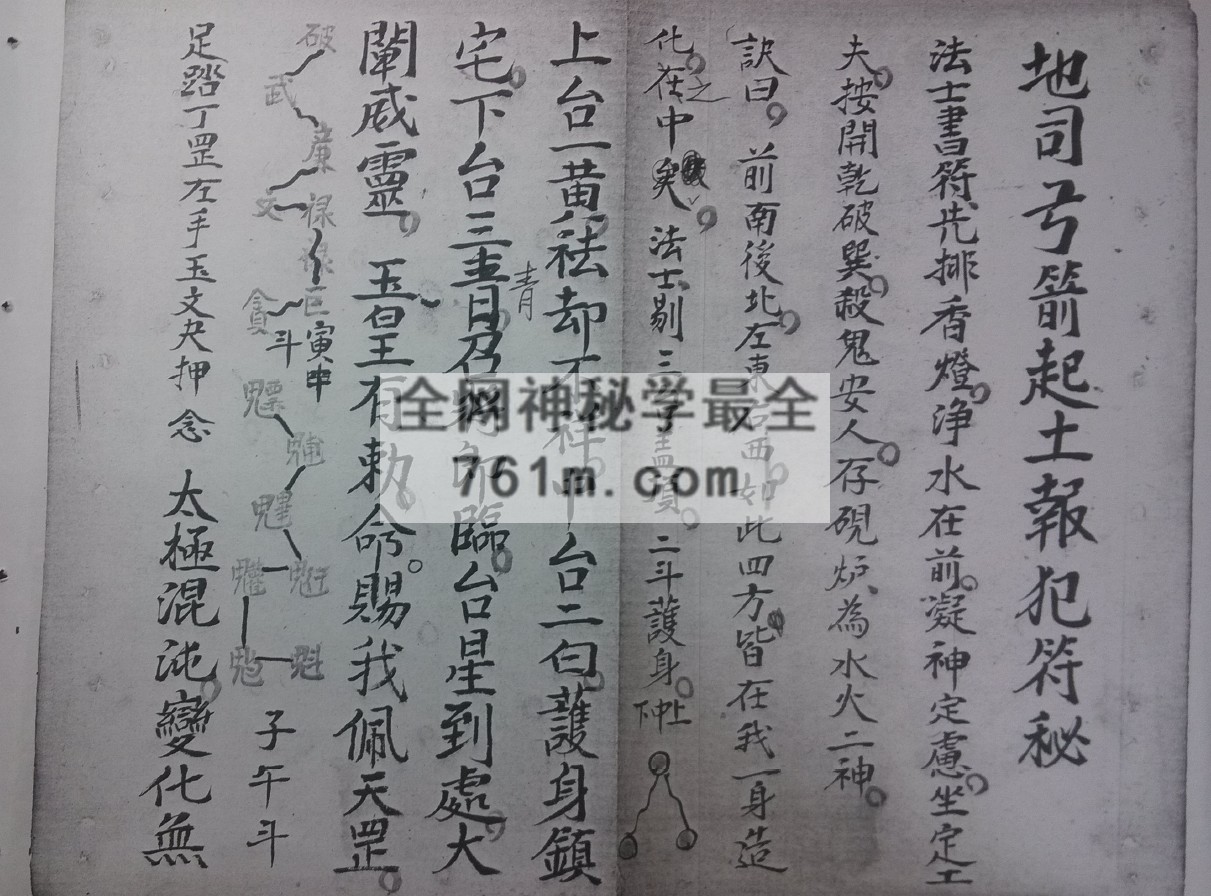 地司弓箭起土報犯符秘
法士書符先排香燈浄水在前凝神定慮坐定工
夫按開乾破巽殺鬼安人存硯炉為水火二神
訣曰前南後北左東右西如此四方皆在我一身造
化在之中矣 法士剔三 二斗護身 下中上
上台一黄祛却不祥中台二白護身鎮
宅下台三青 青
臨台星到處大
闡威靈玉皇有勅命賜我佩天罡
破 武 廉 禄 文 巨 貪 斗 寅申
魒 魓 魁 子午斗
足踏丁罡左手玉文夬押念 太極混沌變化無
全网神秘学最全
761m.com